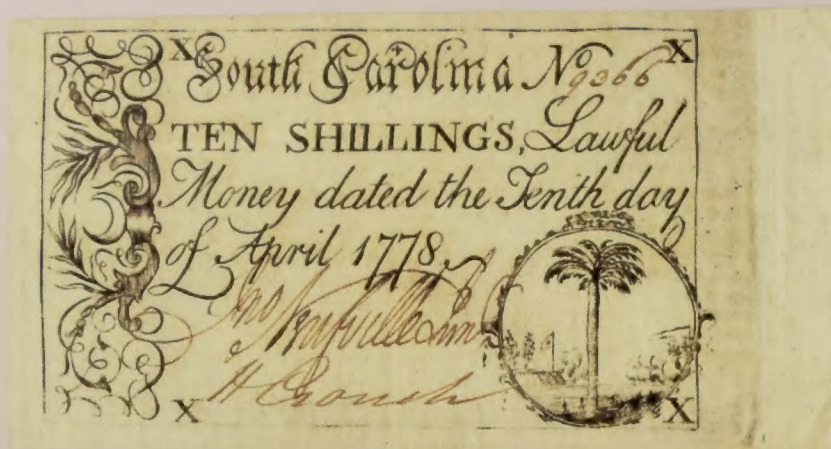 X South Carolina No 9366 X
TEN SHILLINGS, Lawful
Money dated the Tenth day
of April 1778.
Jno Neufville Junr
H Crouch
X X